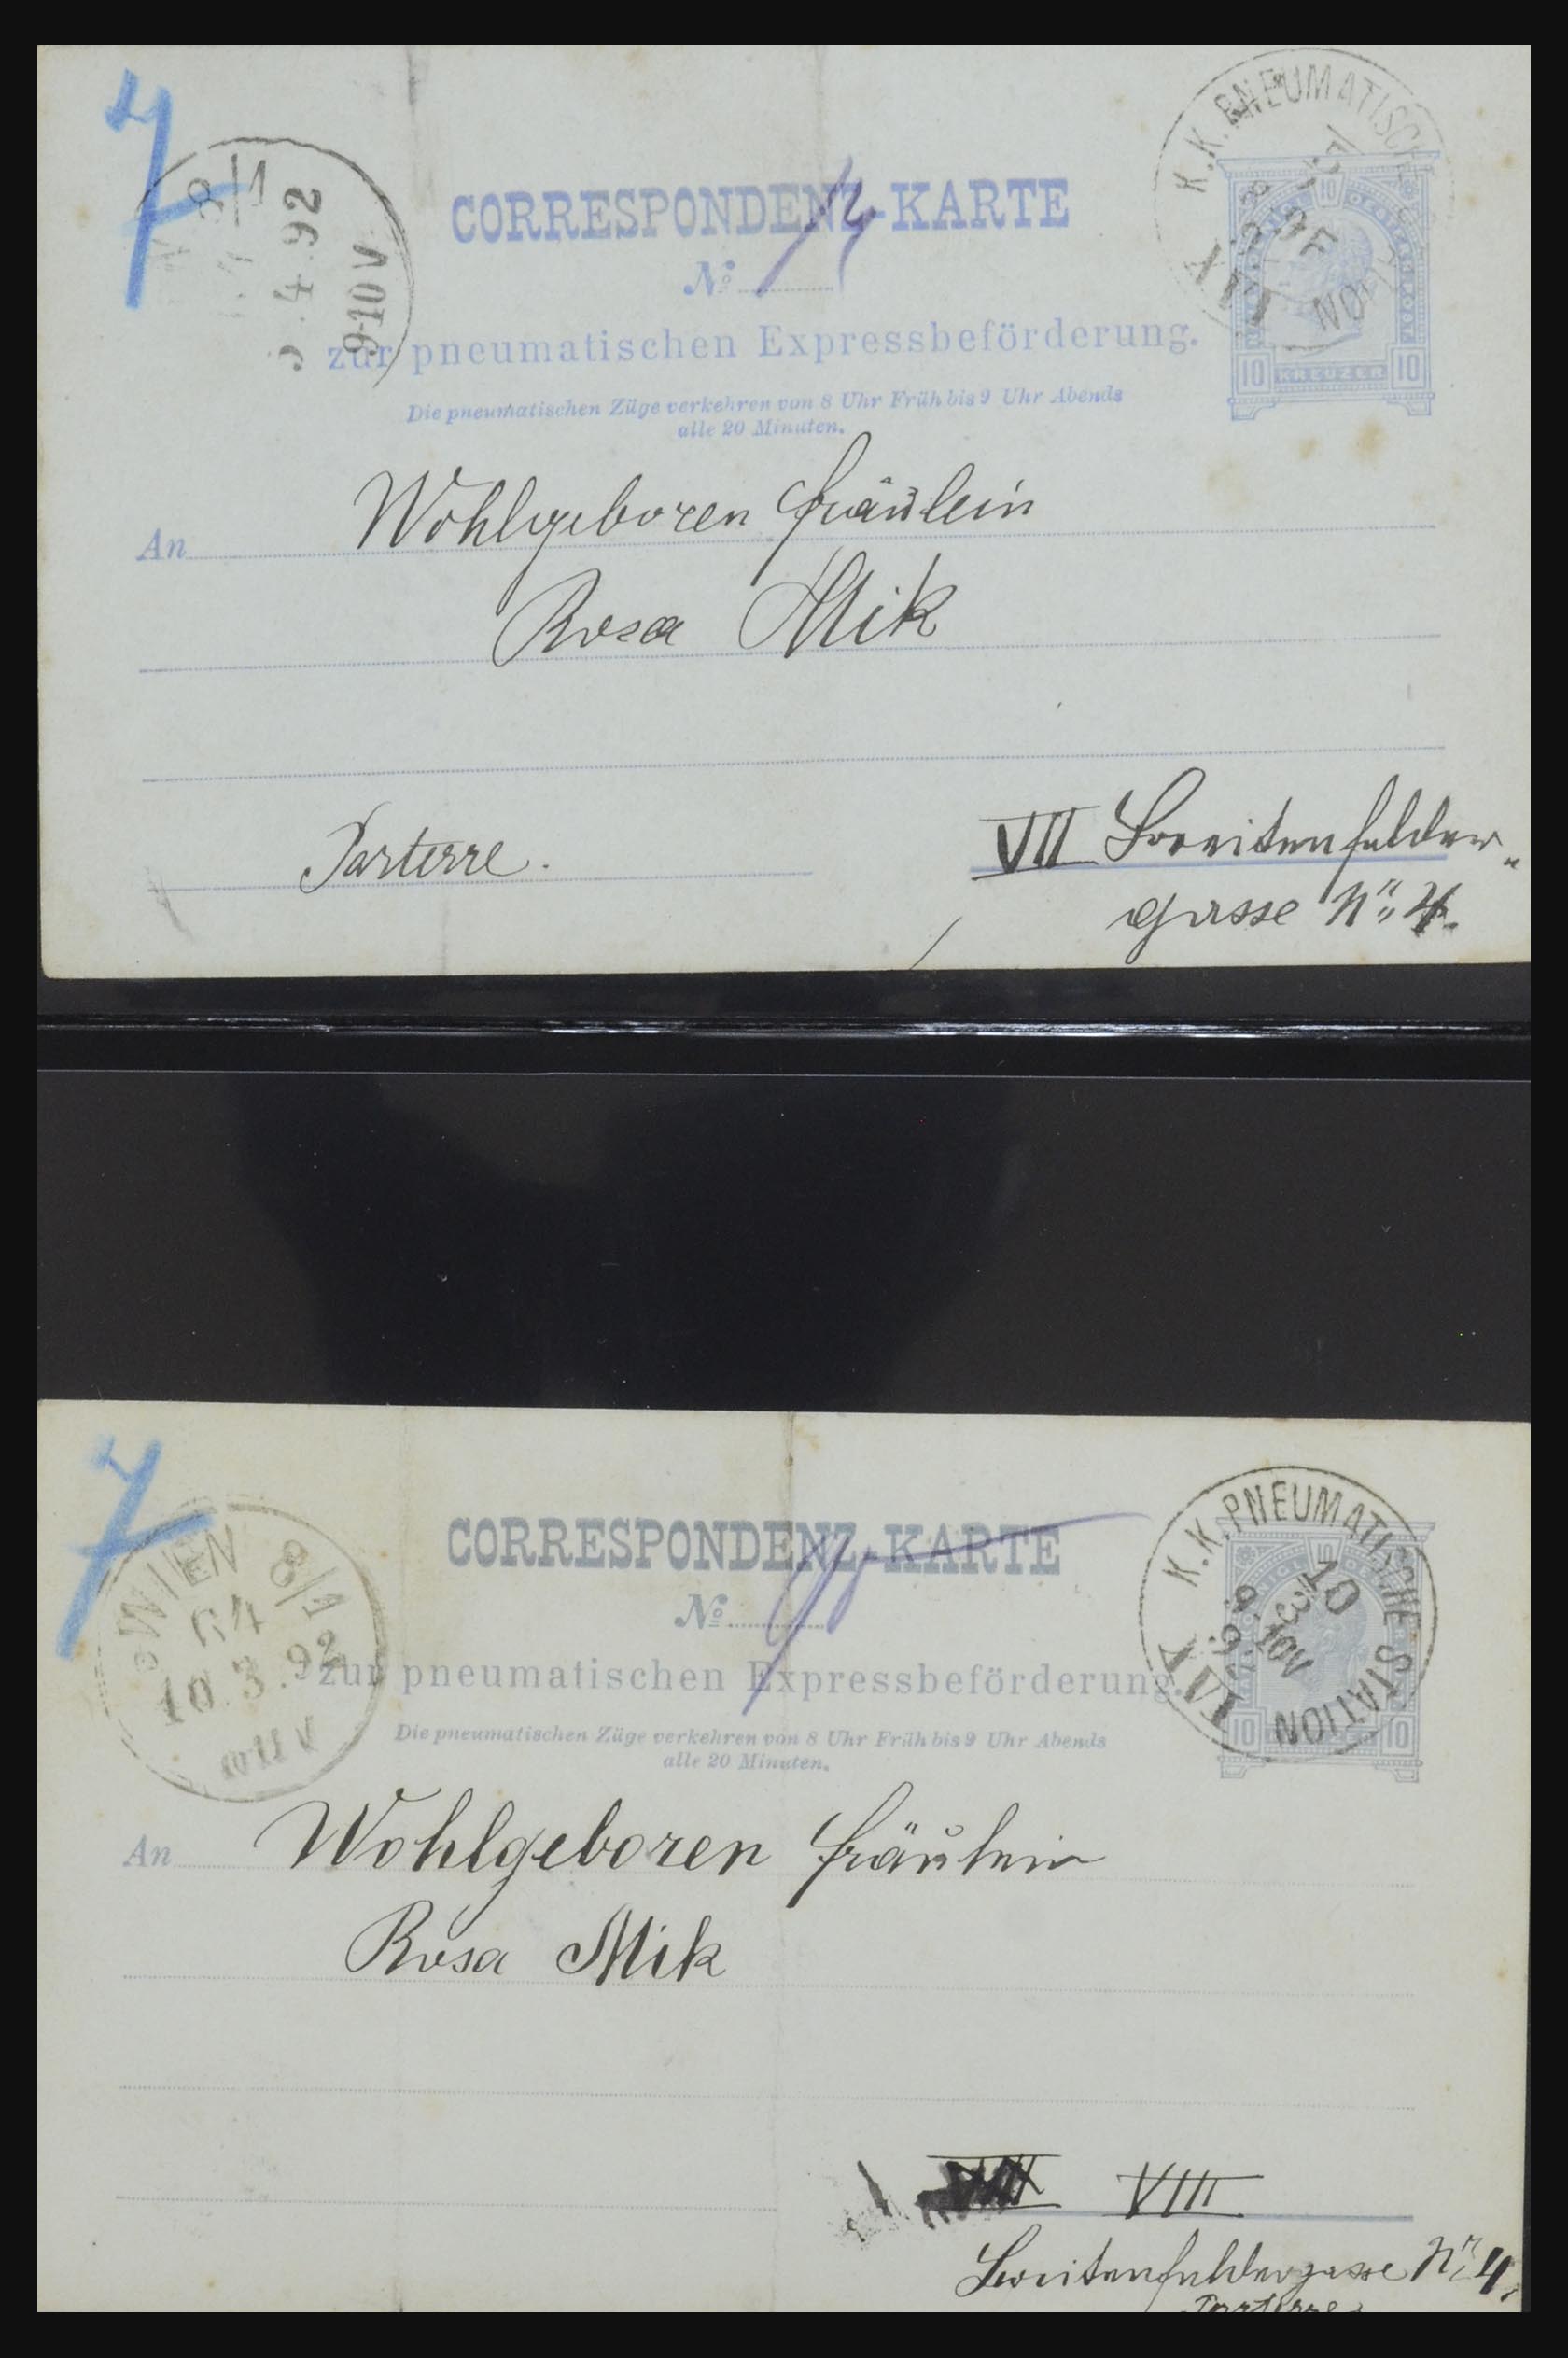 7
8/1
4.92
9-10V
CORRESPONDENZ-KARTE
Nº
zur pneumatischen Expressbeförderung.
Die pneumatischen Züge verkehren von 8 Uhr Früh bis 9 Uhr Abends
alle 20 Minuten.
K.K. PNEUMATISCHE
10
10 KREUZER 10
An Wohlgeboren Fräulein
Rosa Mik
Parterre.
VII Breitenfelder
gasse Nr. 4.
7
WIEN 8/1
64
10.3.92
10-11 V
CORRESPONDENZ-KARTE
Nº
zur pneumatischen Expressbeförderung.
Die pneumatischen Züge verkehren von 8 Uhr Früh bis 9 Uhr Abends
alle 20 Minuten.
K.K. PNEUMATISCHE STATION
10
10 10
An Wohlgeboren Fräulein
Rosa Mik
VIII
Breitenfeldergasse Nr. 4.
Parterre